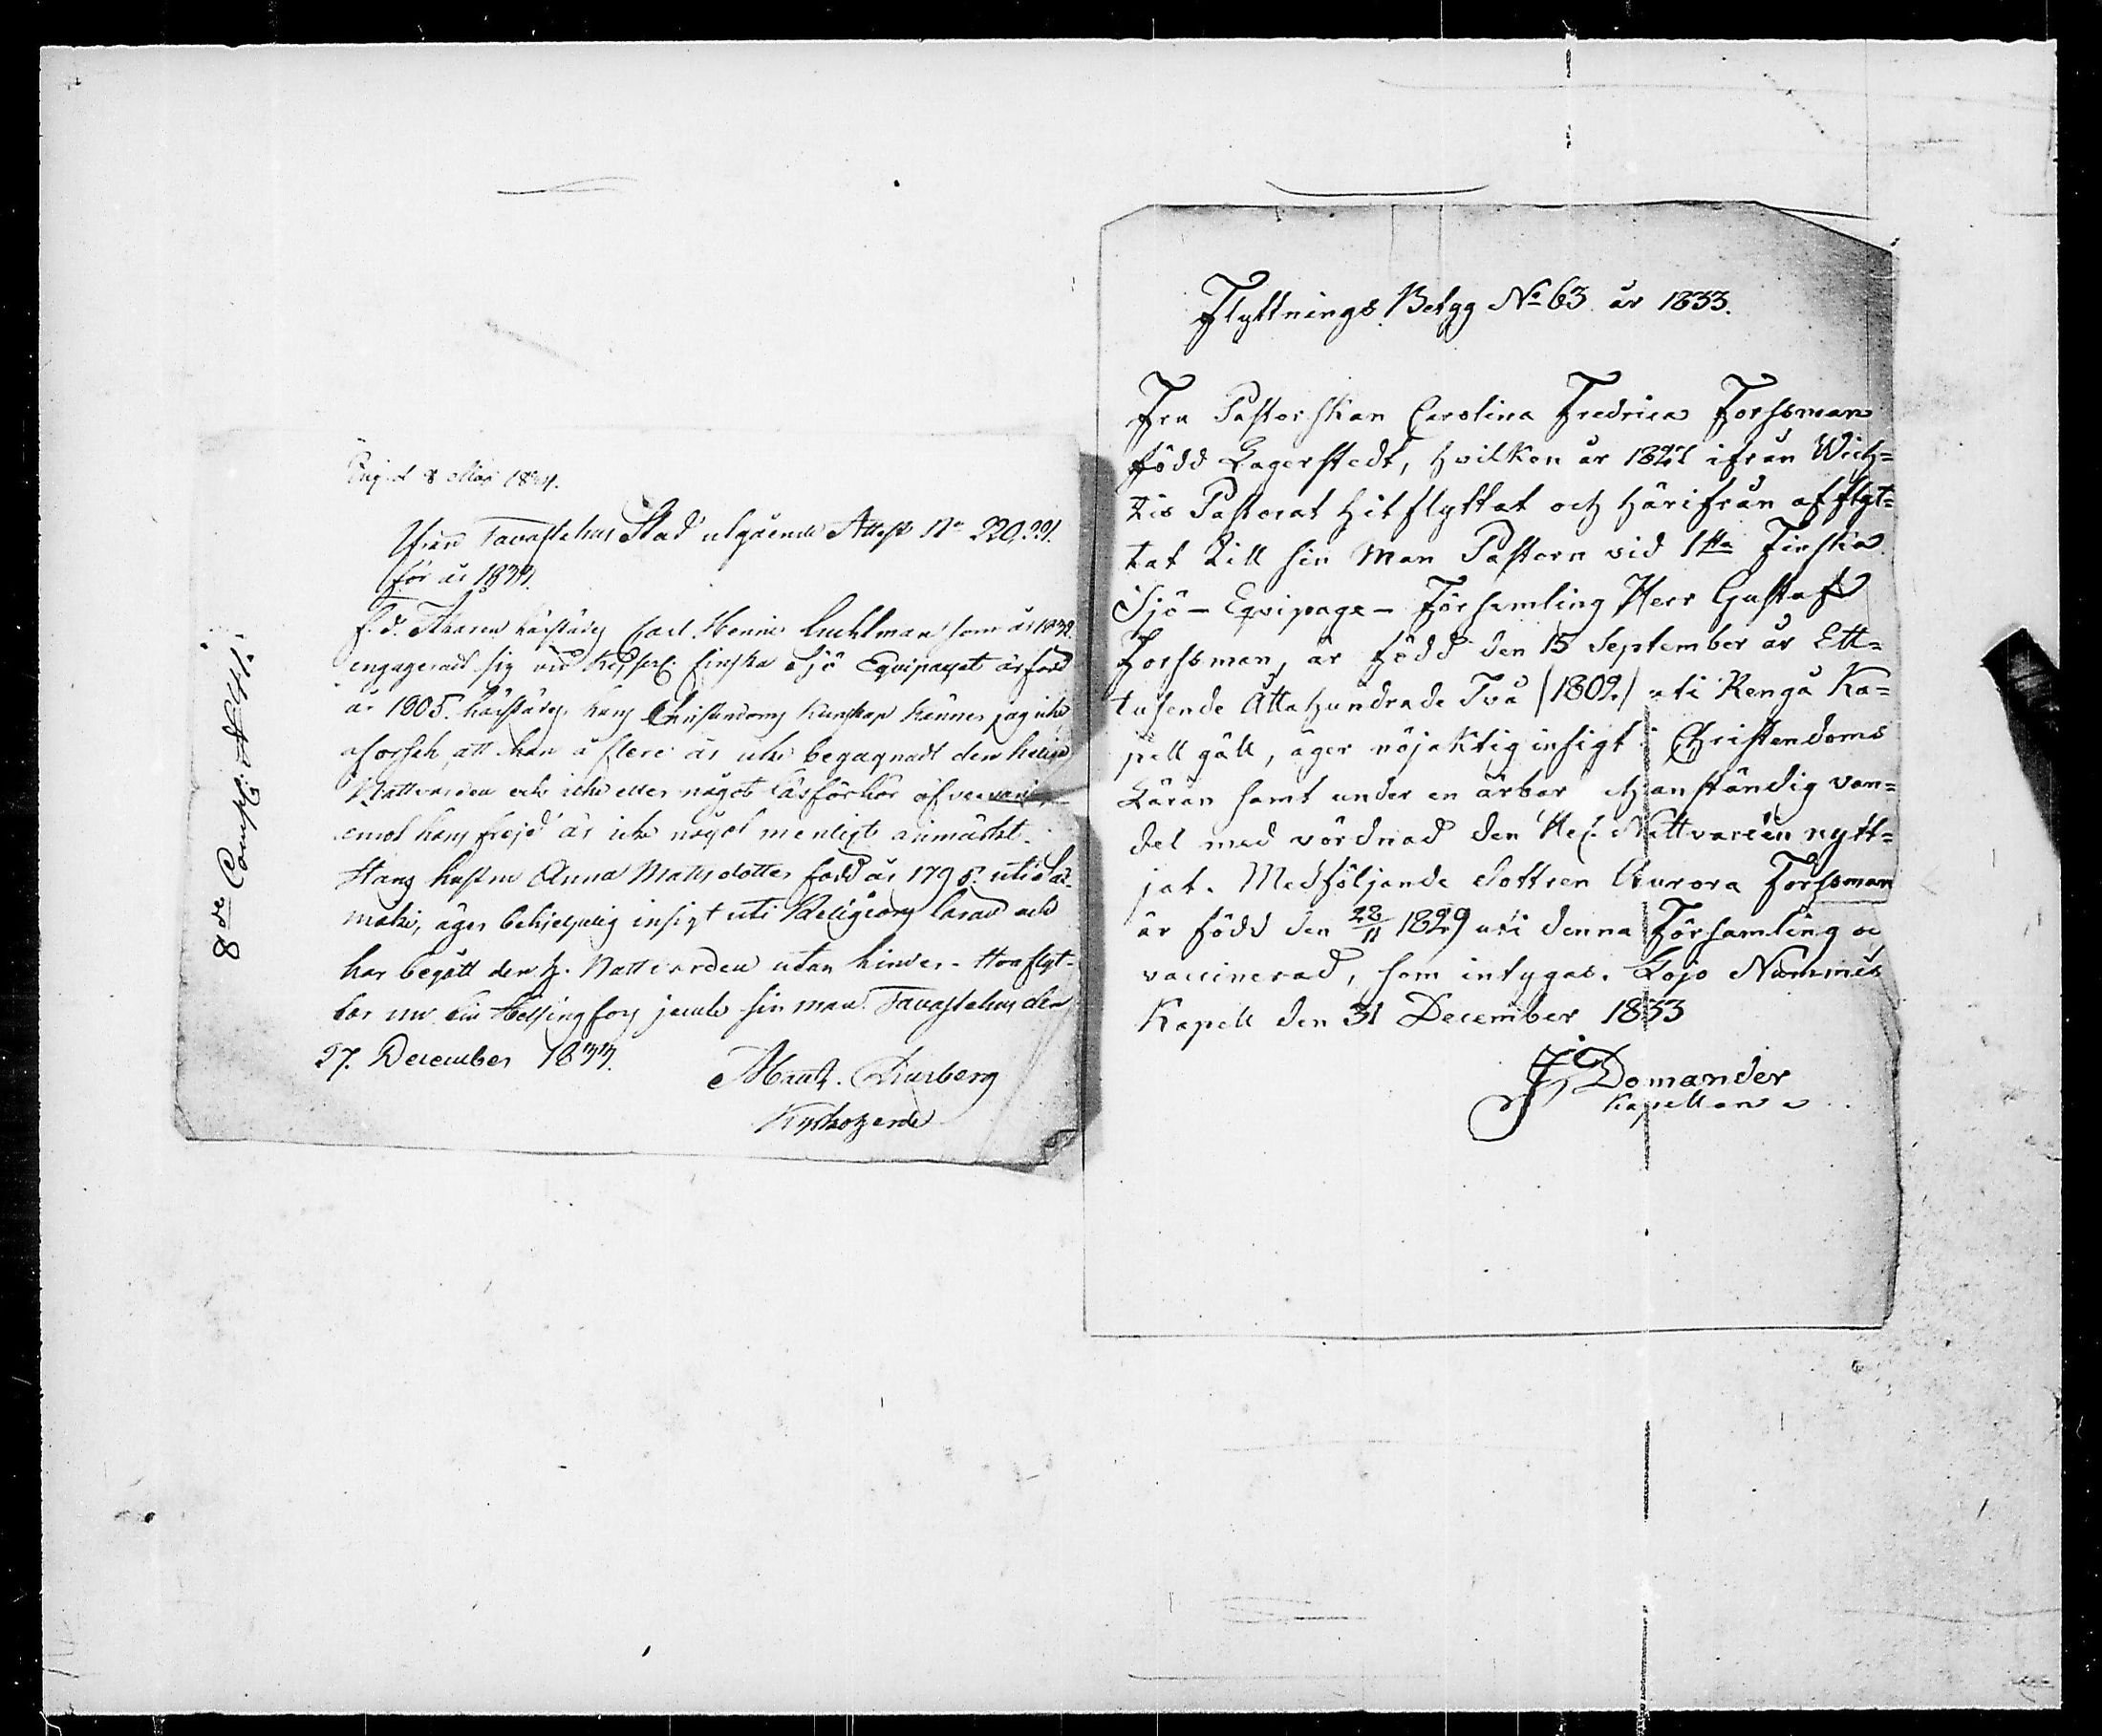 8de Comp: N 44.
Ing. d 8 Mars 1834.
Ifrån Tavastehus Stad utgående Attest No 220,221.
för år 1833.
F. d. härstädes Carl Henric som år 1832
engagerad sig vid Kejserl: Finska Sjö Equipaget är född
år 1805. härstädes, hans Christendoms Kunskap känner jag icke
aforsak, att han å flere år icke begagnadt den helige
Nattvarden och icke eller något läsförhör
emot hans frejd är icke något menligt anmärkt.
Hans hustru Anna Matsdotter född år 1795. uti
mäki, äger behjelpelig insigt uti Religions läran och
har begått den h. Nattvarden utan hinder. Hon flyt-
tar nu till Helsingfors jemte sin man. Tavastehus den
27. December 1833.
Kyrkoherde
Flyttnings Betyg No 63 år 1833.
Fru Pastorskan Carolina Fredrica Forssman
född Lagerstedt, hvilken år 1827 ifrån Wich=
tis Pastorat hitflyttat och härifrån afflyt=
tat till sin Man Pastorn vid 1sta Finska
Sjö-Eqvipage-Församling Herr Gustaf
Forssman, är född den 15 September år Ett=
tusende Åttahundrade Två (1802.) uti Rengå Ka=
pell gäll, äger nöjaktig insigt i Christendoms
Läran samt under en ärbar och anständig van=
del med vördnad den Hel. Nattvarden nytt=
jat. Medföljande dottren Aurora Forssman
är född den 28/11 1829 uti denna Församling oc
vaccinerad, som intygas. Lojo Nummis
Kapell den 31 December 1833
Domander
Kapellan